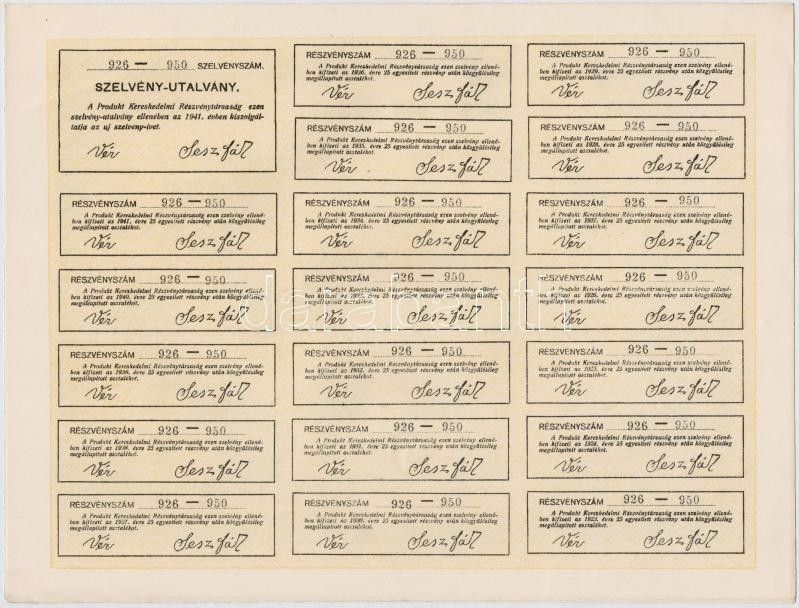 926 — 950 SZELVÉNYSZÁM.
SZELVÉNY-UTALVÁNY.
A Produkt Kereskedelmi Részvénytársaság ezen
szelvény-utalvány ellenében az 1941. évben kiszolgál-
tatja az uj szelvény-ívet.
Vér
RÉSZVÉNYSZÁM 926 — 950
A Produkt Kereskedelmi Részvénytársaság ezen szelvény ellené-
ben kifizeti az 1941. évre 25 egyesitett részvény után közgyülésileg
megállapitott osztalékot.
Vér
RÉSZVÉNYSZÁM 926 — 950
A Produkt Kereskedelmi Részvénytársaság ezen szelvény ellené-
ben kifizeti az 1940. évre 25 egyesitett részvény után közgyülésileg
megállapitott osztalékot.
Vér
RÉSZVÉNYSZÁM 926 — 950
A Produkt Kereskedelmi Részvénytársaság ezen szelvény ellené-
ben kifizeti az 1939. évre 25 egyesitett részvény után közgyülésileg
megállapitott osztalékot.
Vér
RÉSZVÉNYSZÁM 926 — 950
A Produkt Kereskedelmi Részvénytársaság ezen szelvény ellené-
ben kifizeti az 1938. évre 25 egyesitett részvény után közgyülésileg
megállapitott osztalékot.
Vér
RÉSZVÉNYSZÁM 926 — 950
A Produkt Kereskedelmi Részvénytársaság ezen szelvény ellené-
ben kifizeti az 1937. évre 25 egyesitett részvény után közgyülésileg
megállapitott osztalékot.
Vér
RÉSZVÉNYSZÁM 926 — 950
A Produkt Kereskedelmi Részvénytársaság ezen szelvény ellené-
ben kifizeti az 1936. évre 25 egyesitett részvény után közgyülésileg
megállapitott osztalékot.
Vér
RÉSZVÉNYSZÁM 926 — 950
A Produkt Kereskedelmi Részvénytársaság ezen szelvény ellené-
ben kifizeti az 1935. évre 25 egyesitett részvény után közgyülésileg
megállapitott osztalékot.
Vér
RÉSZVÉNYSZÁM 926 — 950
A Produkt Kereskedelmi Részvénytársaság ezen szelvény ellené-
ben kifizeti az 1934. évre 25 egyesitett részvény után közgyülésileg
megállapitott osztalékot.
Vér
RÉSZVÉNYSZÁM 926 — 950
A Produkt Kereskedelmi Részvénytársaság ezen szelvény ellené-
ben kifizeti az 1933. évre 25 egyesitett részvény után közgyülésileg
megállapitott osztalékot.
Vér
RÉSZVÉNYSZÁM 926 — 950
A Produkt Kereskedelmi Részvénytársaság ezen szelvény ellené-
ben kifizeti az 1932. évre 25 egyesitett részvény után közgyülésileg
megállapitott osztalékot.
Vér
RÉSZVÉNYSZÁM 926 — 950
A Produkt Kereskedelmi Részvénytársaság ezen szelvény ellené-
ben kifizeti az 1931. évre 25 egyesitett részvény után közgyülésileg
megállapitott osztalékot.
Vér
RÉSZVÉNYSZÁM 926 — 950
A Produkt Kereskedelmi Részvénytársaság ezen szelvény ellené-
ben kifizeti az 1930. évre 25 egyesitett részvény után közgyülésileg
megállapitott osztalékot.
Vér
RÉSZVÉNYSZÁM 926 — 950
A Produkt Kereskedelmi Részvénytársaság ezen szelvény ellené-
ben kifizeti az 1929. évre 25 egyesitett részvény után közgyülésileg
megállapitott osztalékot.
Vér
RÉSZVÉNYSZÁM 926 — 950
A Produkt Kereskedelmi Részvénytársaság ezen szelvény ellené-
ben kifizeti az 1928. évre 25 egyesitett részvény után közgyülésileg
megállapitott osztalékot.
Vér
RÉSZVÉNYSZÁM 926 — 950
A Produkt Kereskedelmi Részvénytársaság ezen szelvény ellené-
ben kifizeti az 1927. évre 25 egyesitett részvény után közgyülésileg
megállapitott osztalékot.
Vér
RÉSZVÉNYSZÁM 926 — 950
A Produkt Kereskedelmi Részvénytársaság ezen szelvény ellené-
ben kifizeti az 1926. évre 25 egyesitett részvény után közgyülésileg
megállapitott osztalékot.
Vér
RÉSZVÉNYSZÁM 926 — 950
A Produkt Kereskedelmi Részvénytársaság ezen szelvény ellené-
ben kifizeti az 1925. évre 25 egyesitett részvény után közgyülésileg
megállapitott osztalékot.
Vér
RÉSZVÉNYSZÁM 926 — 950
A Produkt Kereskedelmi Részvénytársaság ezen szelvény ellené-
ben kifizeti az 1924. évre 25 egyesitett részvény után közgyülésileg
megállapitott osztalékot.
Vér
RÉSZVÉNYSZÁM 926 — 950
A Produkt Kereskedelmi Részvénytársaság ezen szelvény ellené-
ben kifizeti az 1923. évre 25 egyesitett részvény után közgyülésileg
megállapitott osztalékot.
Vér
darabanth